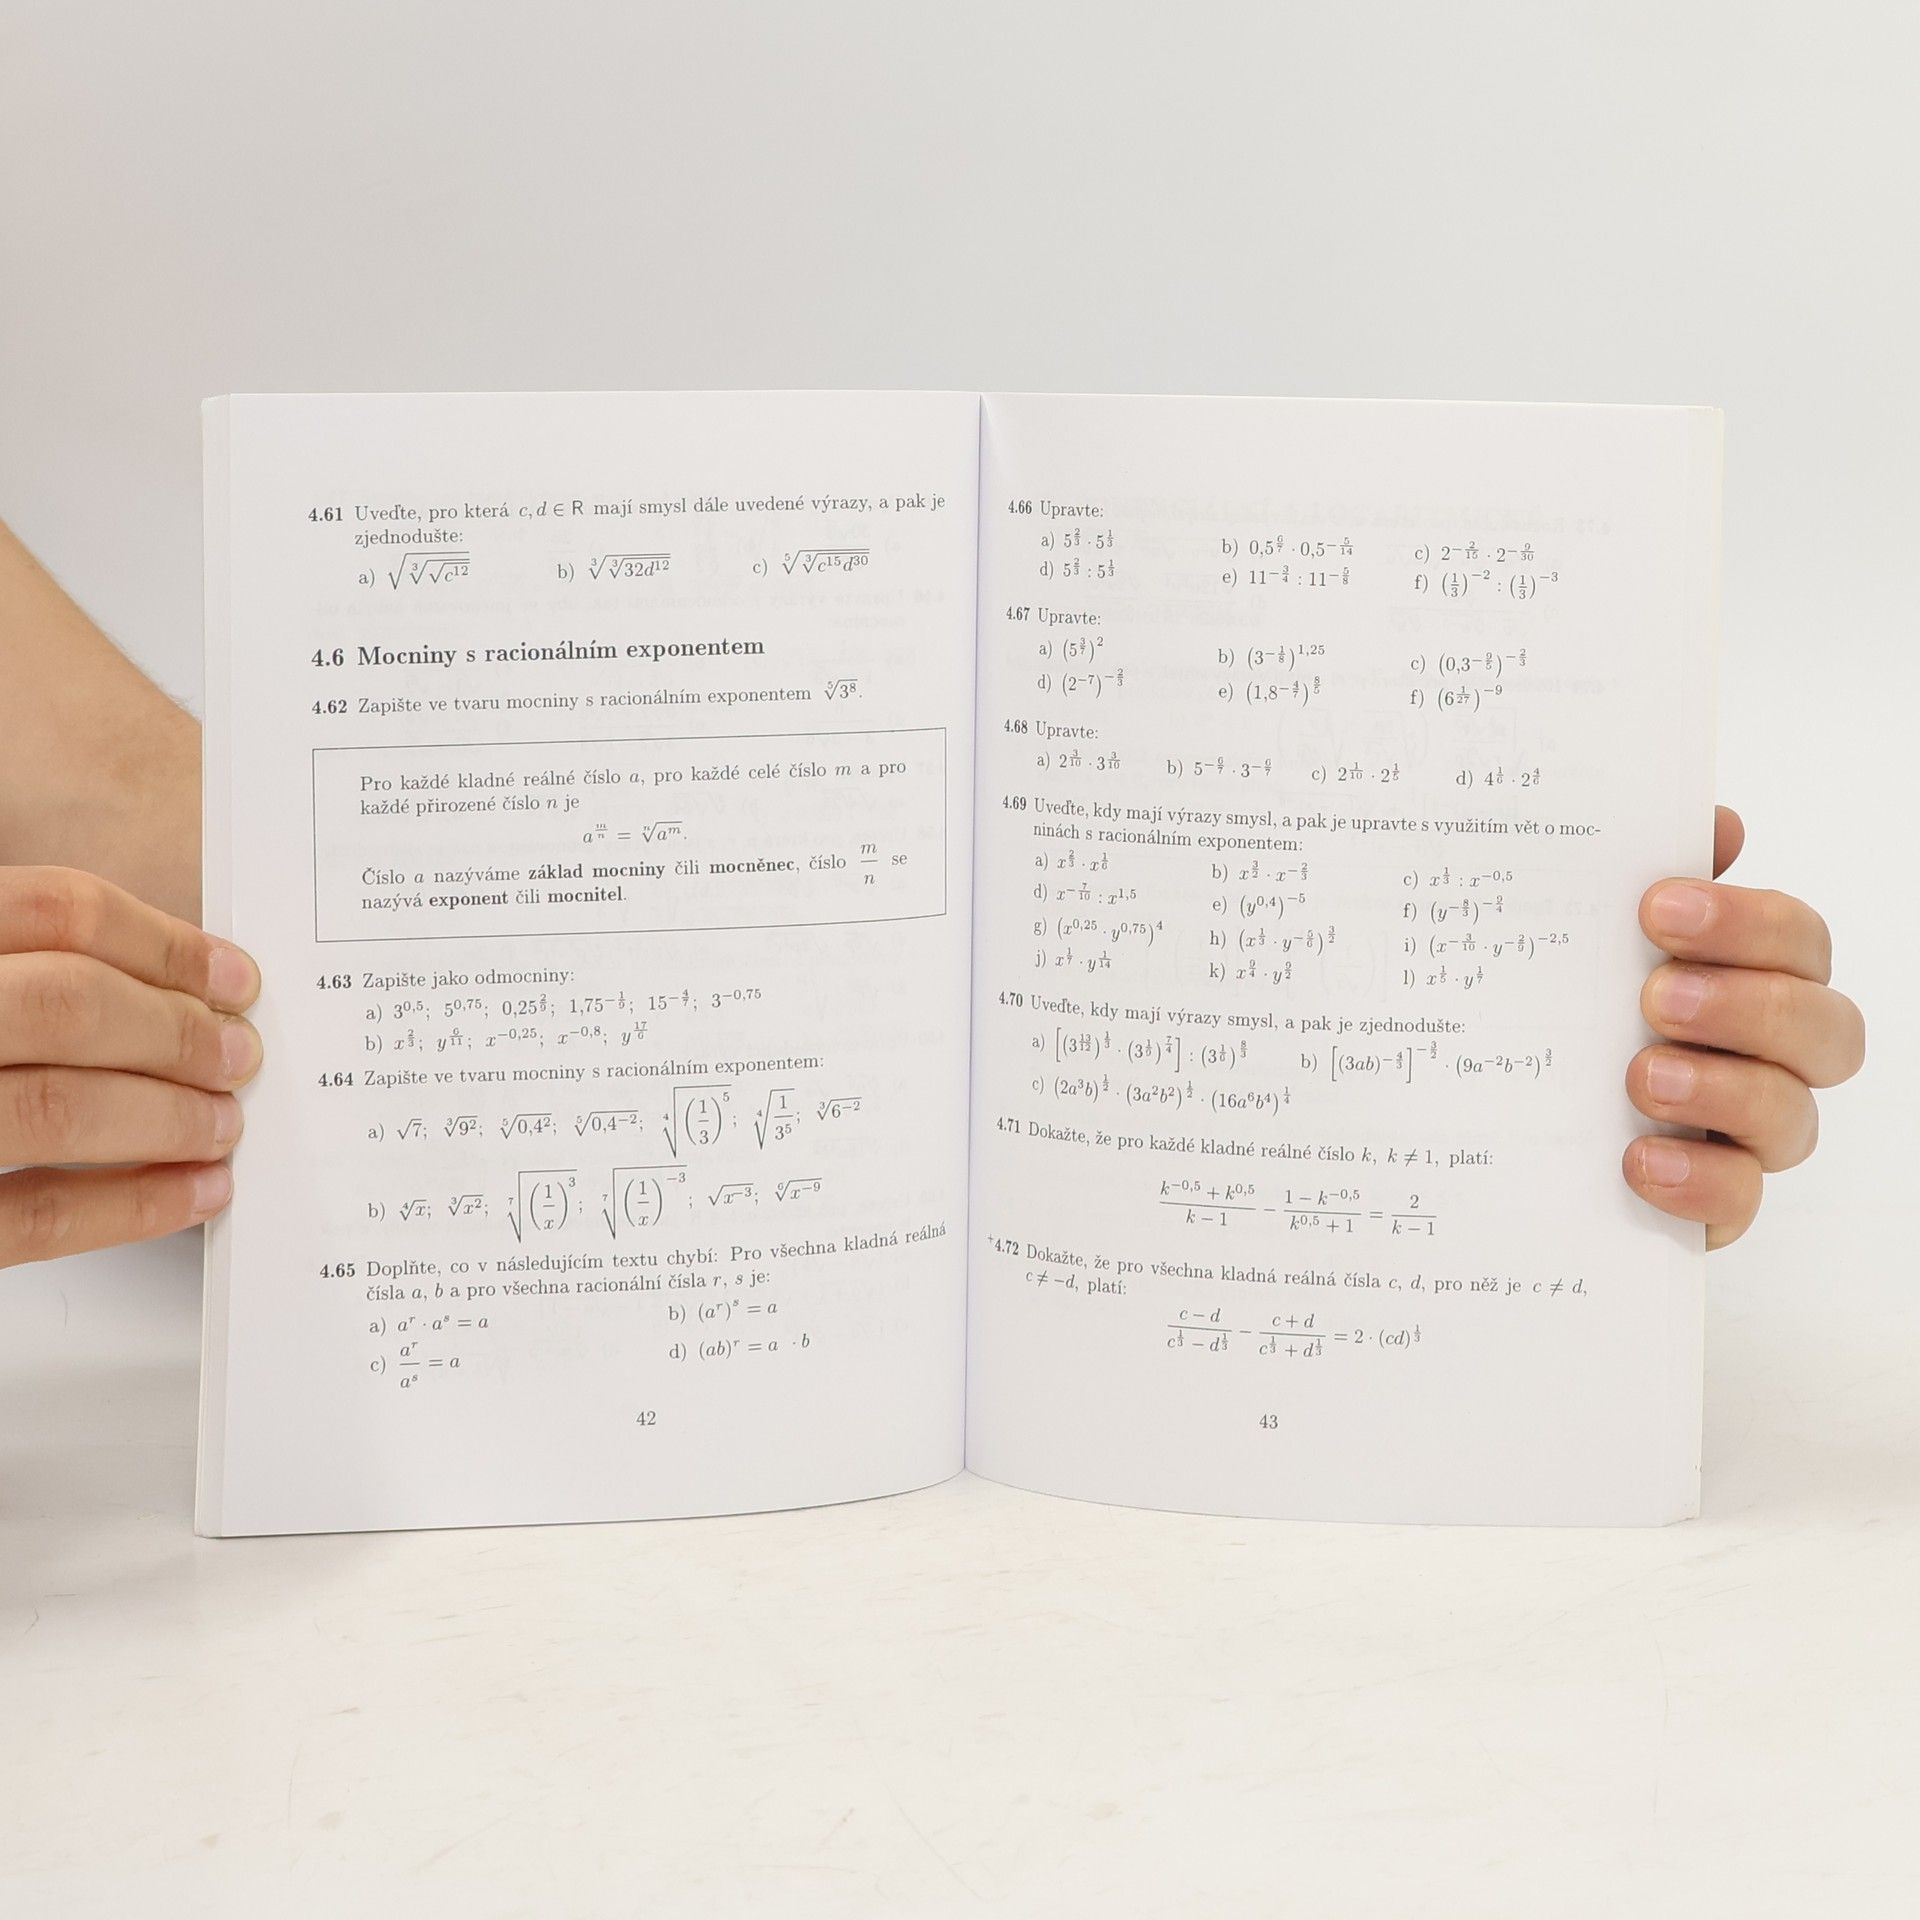 4.61 Uveďte, pro která c, d ∈ R mají smysl dále uvedené výrazy, a pak je
zjednodušte:
a) √(∛(√(c¹²))) b) ∛(∛(32d¹²)) c) ⁵√(∛(c¹⁵d³⁰))
4.6 Mocniny s racionálním exponentem
4.62 Zapište ve tvaru mocniny s racionálním exponentem ⁵√(3⁸).
Pro každé kladné reálné číslo a, pro každé celé číslo m a pro
každé přirozené číslo n je
a^(m/n) = ⁿ√(a^m).
Číslo a nazýváme základ mocniny čili mocněnec, číslo m/n se
nazývá exponent čili mocnitel.
4.63 Zapište jako odmocniny:
a) 3^(0,5); 5^(0,75); 0,25^(2/9); 1,75^(−1/9); 15^(−4/7); 3^(−0,75)
b) x^(2/3); y^(6/11); x^(−0,25); x^(−0,8); y^(17/6)
4.64 Zapište ve tvaru mocniny s racionálním exponentem:
a) √7; ∛(9²); ⁵√(0,4²); ⁵√(0,4^(−2)); ⁴√((1/3)⁵); ⁴√(1/3⁵); ∛(6^(−2))
b) ⁴√x; ∛(x²); ⁷√((1/x)³); ⁷√((1/x)^(−3)); √(x^(−3)); ⁶√(x^(−9))
4.65 Doplňte, co v následujícím textu chybí: Pro všechna kladná reálná
čísla a, b a pro všechna racionální čísla r, s je:
a) a^r · a^s = a b) (a^r)^s = a
c) a^r/a^s = a d) (ab)^r = a · b
42
4.66 Upravte:
a) 5^(2/3) · 5^(1/3) b) 0,5^(6/7) · 0,5^(−5/14) c) 2^(−2/15) · 2^(−9/30)
d) 5^(2/3) : 5^(1/3) e) 11^(−3/4) : 11^(−5/8) f) (1/3)^(−2) : (1/3)^(−3)
4.67 Upravte:
a) (5^(3/7))² b) (3^(−1/8))^(1,25) c) (0,3^(−9/5))^(−2/3)
d) (2^(−7))^(−2/3) e) (1,8^(−4/7))^(8/5) f) (6^(1/27))^(−9)
4.68 Upravte:
a) 2^(3/10) · 3^(3/10) b) 5^(−6/7) · 3^(−6/7) c) 2^(1/10) · 2^(1/5) d) 4^(1/6) · 2^(4/6)
4.69 Uveďte, kdy mají výrazy smysl, a pak je upravte s využitím vět o moc-
ninách s racionálním exponentem:
a) x^(2/3) · x^(1/6) b) x^(3/2) · x^(−2/3) c) x^(1/3) : x^(−0,5)
d) x^(−7/10) : x^(1,5) e) (y^(0,4))^(−5) f) (y^(−8/3))^(−9/4)
g) (x^(0,25) · y^(0,75))⁴ h) (x^(1/3) · y^(−5/6))^(3/2) i) (x^(−3/10) · y^(−2/9))^(−2,5)
j) x^(1/7) · y^(1/14) k) x^(9/4) · y^(9/2) l) x^(1/5) · y^(1/7)
4.70 Uveďte, kdy mají výrazy smysl, a pak je zjednodušte:
a) [(3^(13/12))^(1/3) · (3^(1/9))^(7/4)] : (3^(1/6))^(8/3) b) [(3ab)^(−4/3)]^(−3/2) · (9a^(−2)b^(−2))^(3/2)
c) (2a³b)^(1/2) · (3a²b²)^(1/2) · (16a⁶b⁴)^(1/4)
4.71 Dokažte, že pro každé kladné reálné číslo k, k ≠ 1, platí:
(k^(−0,5) + k^(0,5))/(k − 1) − (1 − k^(−0,5))/(k^(0,5) + 1) = 2/(k − 1)
+4.72 Dokažte, že pro všechna kladná reálná čísla c, d, pro něž je c ≠ d,
c ≠ −d, platí:
(c − d)/(c^(1/3) − d^(1/3)) − (c + d)/(c^(1/3) + d^(1/3)) = 2 · (cd)^(1/3)
43